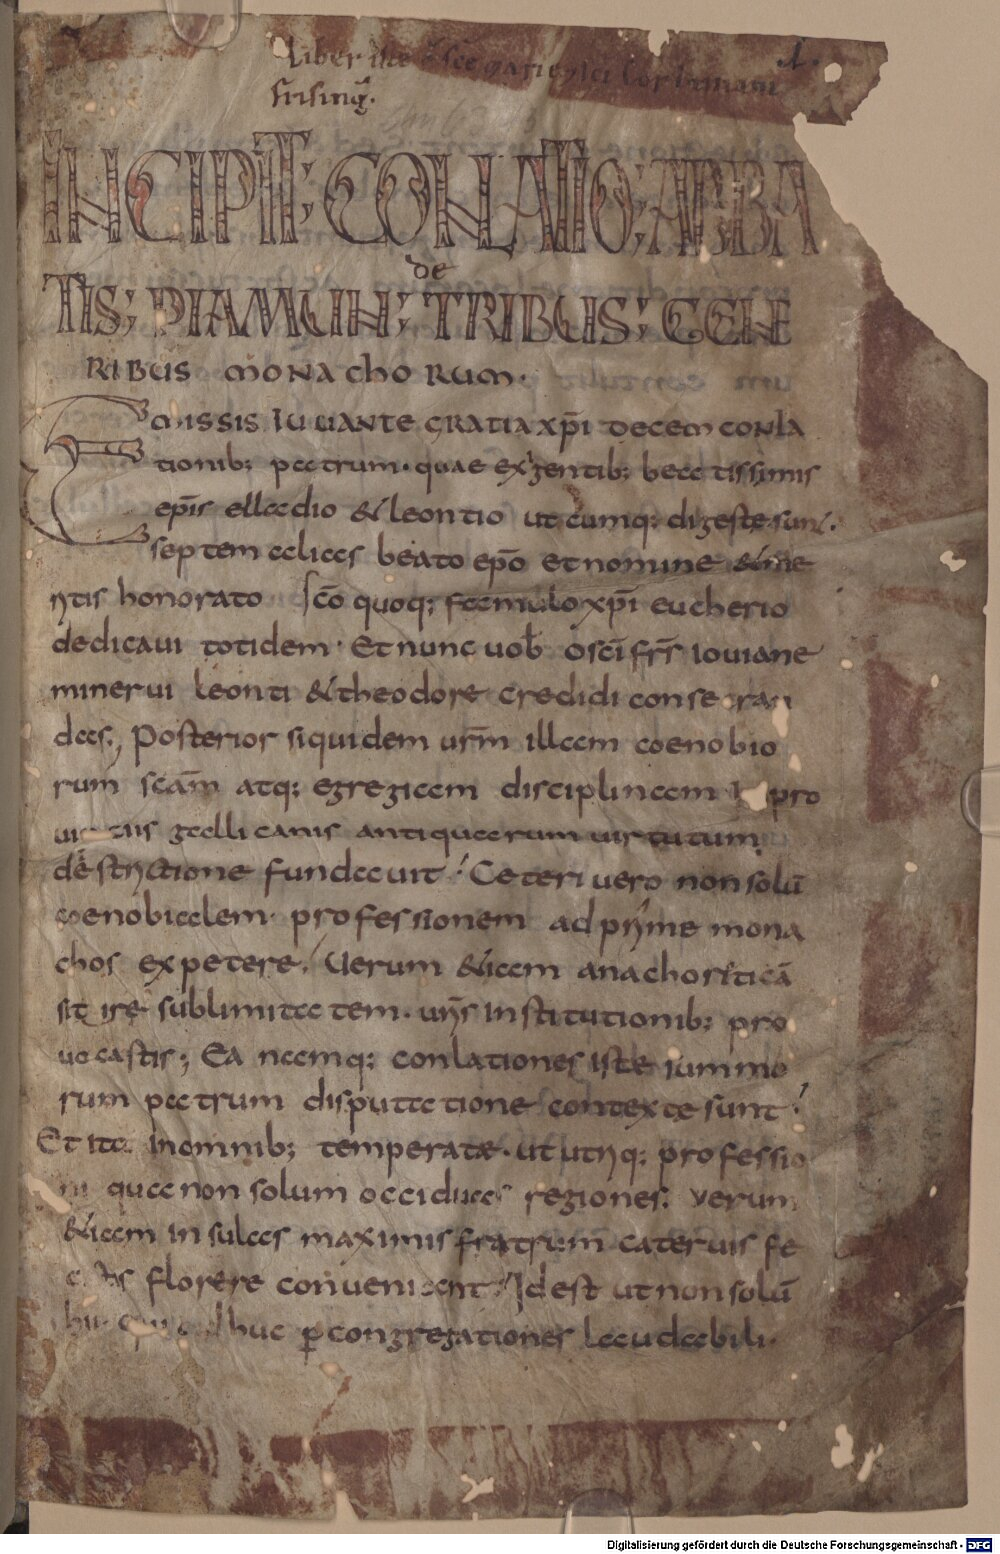 Liber iste ē scē marie & sci Corbiniani
frising̃.
INCIPIT; CONLATIO; ABBA
de
TIS; PIAMUN; TRIBUS; GEN
RIBUS MONACHORUM.
EMISSIS IUUANTE GRATIA XP̄I DECEM CONLA
tionib; patrum. quae exigentib; beatissimis
ep̄is elladio & leontio ut cumq; digeste sunt.
septem alias beato ep̄o et nomine & me
ritis honorato sc̄o quoq; famulo xp̄i eucherio
dedicaui totidem. Et nunc uob o sc̄i fr̄s iouiane
minerui leonti & theodore credidi consecran
das; Posterior siquidem ur̄m illam coenobio
rum sc̄am atq; egregiam disciplinam pro
uinciis gallicanis antiquarum uirtutum
destrictione fundauit; Ceteri uero non solū
coenobialem professionem ad prime mona
chos expetere. Uerum &iam anachoriticā
sitire sublimitatem. uris institutionib; pro
uocastis; Ea namq; conlationes iste summo
rum patrum disputatione contexte sunt;
Et ita in omnib; temperatæ. ut utriq; professio
ni quae non solum occiduas regiones. verum
&iam insulas maximis fratrum cateruis fe
cistis florere conueniant; Id est ut non solū
hii qui adhuc p̱ congregationes laudabili.
Digitalisierung gefördert durch die Deutsche Forschungsgemeinschaft - DFG